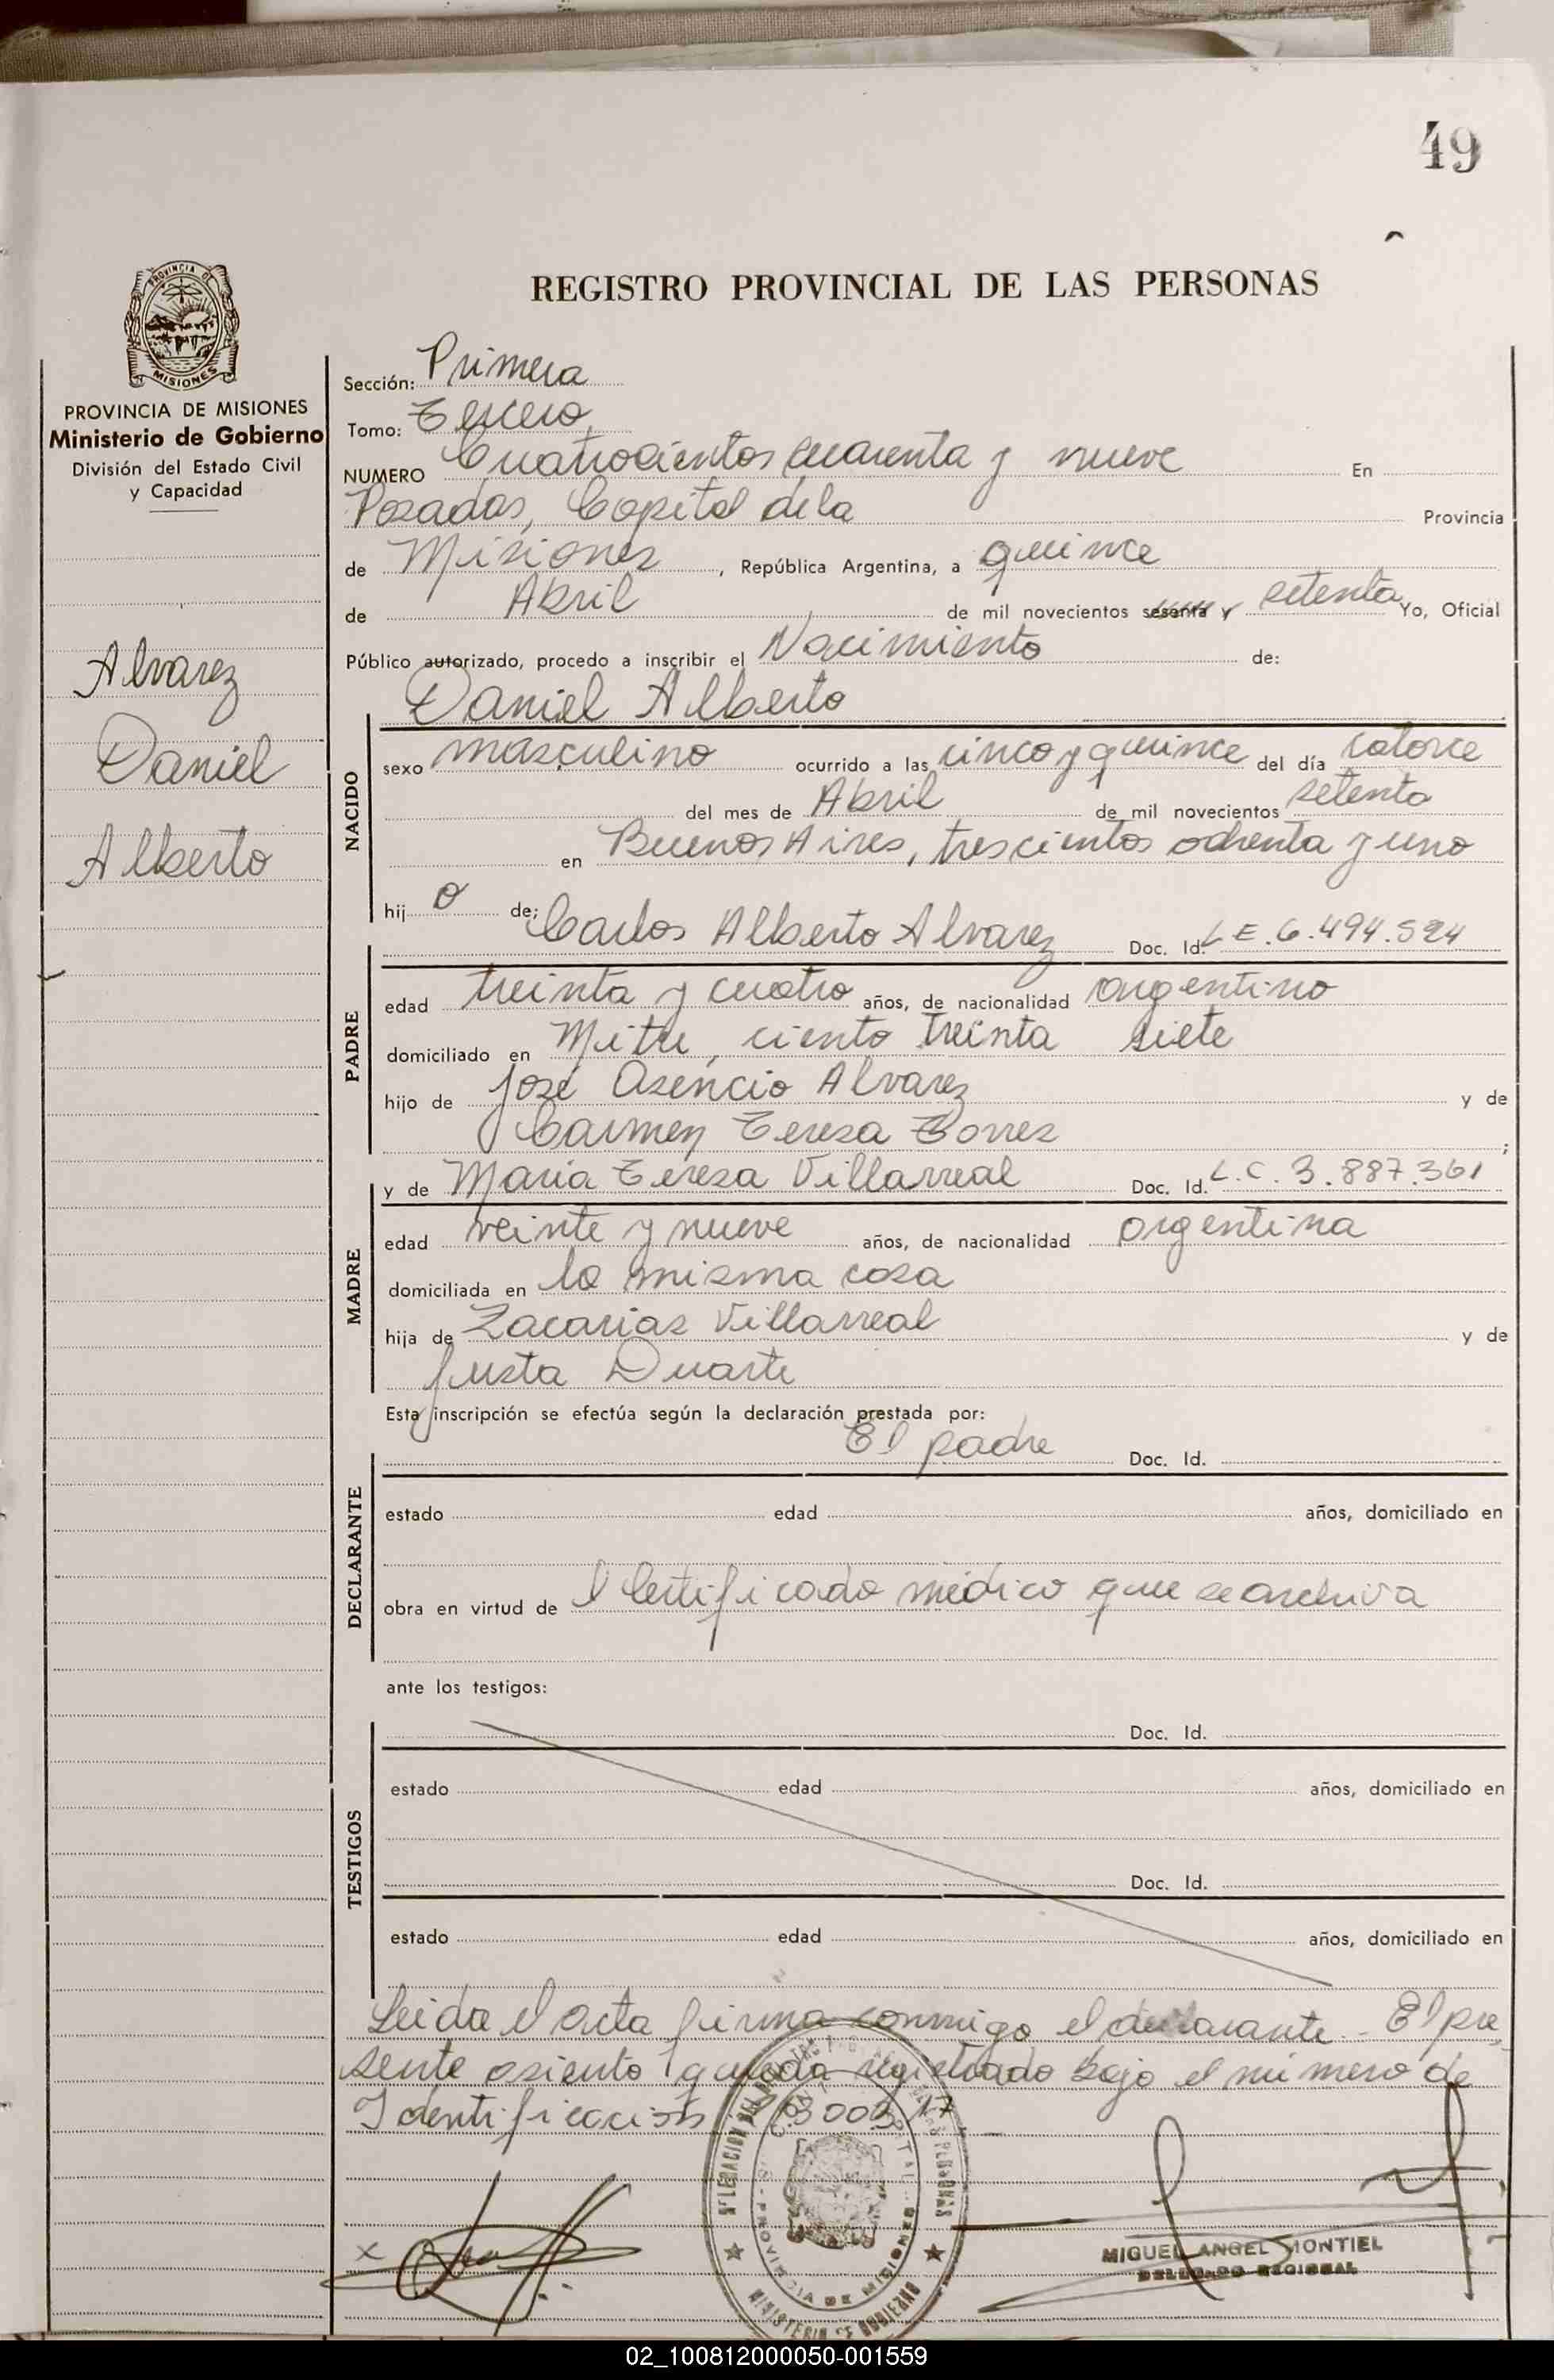 49
REGISTRO PROVINCIAL DE LAS PERSONAS
PROVINCIA DE
MISIONES
PROVINCIA DE MISIONES
Ministerio de Gobierno
División del Estado Civil
y Capacidad
Alvarez
Daniel
Alberto
Sección: Primera
Tomo: Tercero
NUMERO Cuatrocientos cuarenta y nueve En
Posadas, Capital de la Provincia
de Misiones, República Argentina, a quince
de Abril de mil novecientos sesenta y setenta Yo, Oficial
Público autorizado, procedo a inscribir el Nacimiento de:
Daniel Alberto
NACIDO
sexo masculino ocurrido a las cinco y quince del día catorce
del mes de Abril de mil novecientos setenta
en Buenos Aires, trescientos ochenta y uno
hijo de: Carlos Alberto Alvarez Doc. Id. L E. 6.494.524
PADRE
edad treinta y cuatro años, de nacionalidad argentino
domiciliado en Mitre, ciento treinta siete
hijo de José Asencio Alvarez y de
Carmen Teresa Torres ;
y de Maria Teresa Villarreal Doc. Id. L.C. 3.887.361
MADRE
edad veinte y nueve años, de nacionalidad argentina
domiciliada en la misma casa
hija de Zacarias Villarreal y de
Justa Duarte
Esta inscripción se efectúa según la declaración prestada por:
El padre Doc. Id.
DECLARANTE
estado edad años, domiciliado en
obra en virtud de l Certificado médico que se archiva
ante los testigos:
Doc. Id.
TESTIGOS
estado edad años, domiciliado en
Doc. Id.
estado edad años, domiciliado en
Leida el acta firma conmigo el declarante.- El pre
sente asiento queda registrado bajo el numero de
Identificación
PROVINCIA DE MISIONES
MINISTERIO DE GOBIERNO
MIGUEL ANGEL MONTIEL
DELEGADO REGIONAL
02_100812000050-001559